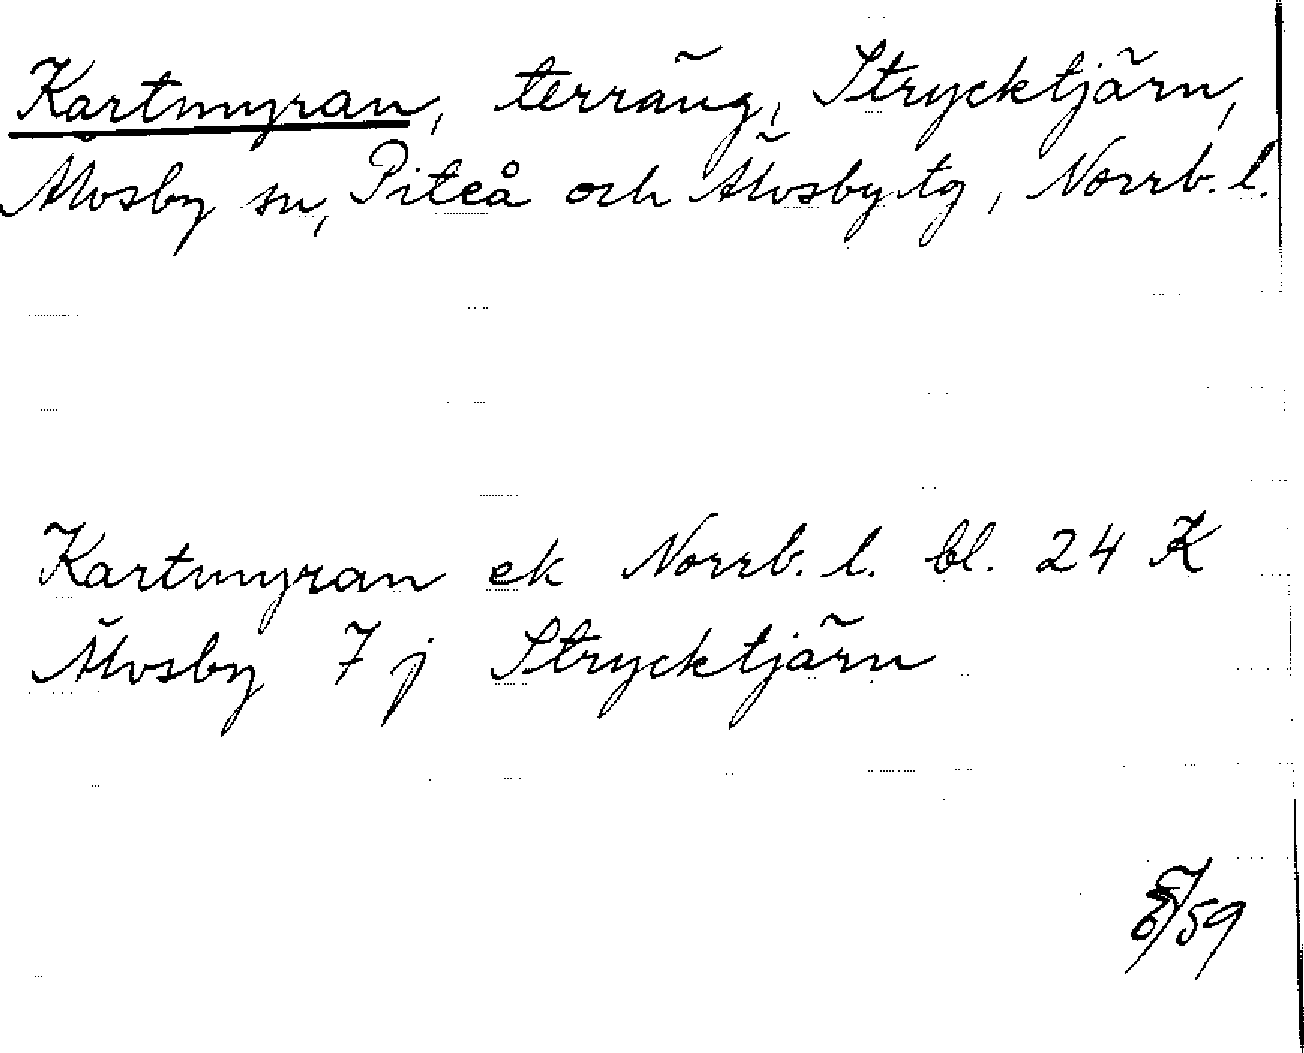 Kartmyran, terräng, Strycktjärn,
Älvsby sn, Piteå och Älvsby tg, Norrb. l.
Kartmyran ek Norrb. l. bl. 24 K
Älvsby 7 j Strycktjärn
/59